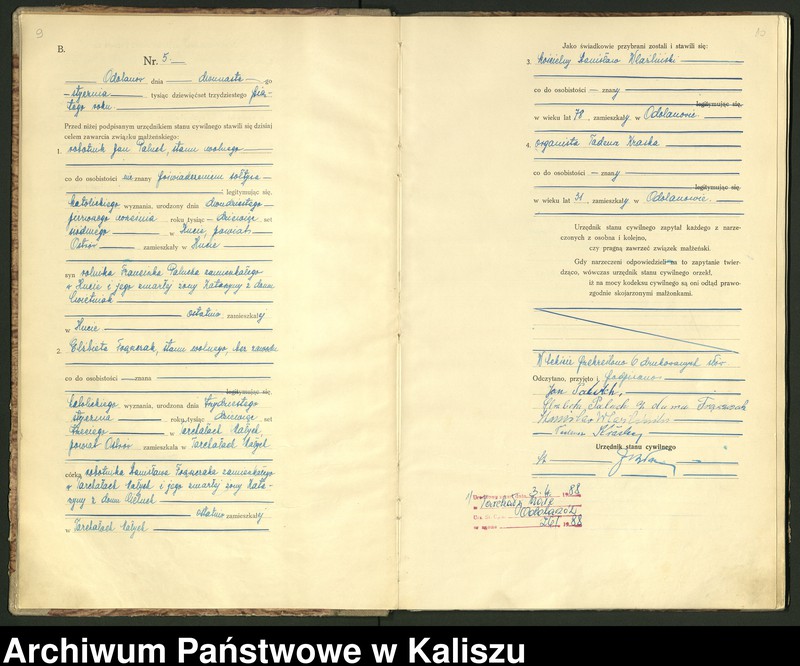 9
B.
Nr. 5
Odolanow dnia dwunasto go
stycznia tysiąc dziewięćset trzydziestego pią-
tego roku.
Przed niżej podpisanym urzędnikiem stanu cywilnego stawili się dzisiaj
celem zawarcia związku małżeńskiego:
1. robotnik Jan Paluch, stanu wolnego
co do osobistości nieznany poświadczeniem sołtysa
legitymując się,
katolickiego wyznania, urodzony dnia dwudziestego
pierwszego września roku tysiąc dziewięć set
siódmego w Hucie, powiat
Ostrów zamieszkały w Hucie
syn rolnika Franciszka Palucha zamieszkałego
w Hucie i jego zmarłej żony Katarzyny z domu
ostatnio zamieszkały
w Hucie
2. Elżbieta Frąszczak, stanu wolnego, bez zawodu
co do osobistości znana
legitymując się,
katolickiego wyznania, urodzona dnia trzydziestego
stycznia roku tysiąc dziewięć set
trzeciego w Tarchałach Małych,
powiat Ostrów zamieszkała w Tarchałach Małych
córka robotnika Stanisława Frąszczaka zamieszkałego
w Tarchałach Małych i jego zmarłej żony Kata-
rzyny z domu
ostatnio zamieszkały
w Tarchałach Małych
10
Jako świadkowie przybrani zostali i stawili się:
3. kościelny Stanisław
co do osobistości znany
legitymując się,
w wieku lat 78, zamieszkały w Odolanowie
4. organista Tadeusz Kraska
co do osobistości znany
legitymując się,
w wieku lat 31, zamieszkały w Odolanowie.
Urzędnik stanu cywilnego zapytał każdego z narze-
czonych z osobna i kolejno,
czy pragną zawrzeć związek małżeński.
Gdy narzeczeni odpowiedzieli na to zapytanie twier-
dząco, wówczas urzędnik stanu cywilnego orzekł,
iż na mocy kodeksu cywilnego są oni odtąd prawo-
zgodnie skojarzonymi małżonkami.
W tekście przekreślono 6 drukowanych słów
Odczytano, przyjęto i podpisano
Jan Paluch,
Elżbieta Paluch z domu Frąszczak
Stanisław
Tadeusz Kraska
Urzędnik stanu cywilnego
Tarchały Małe
Odolanów
Archiwum Państwowe w Kaliszu